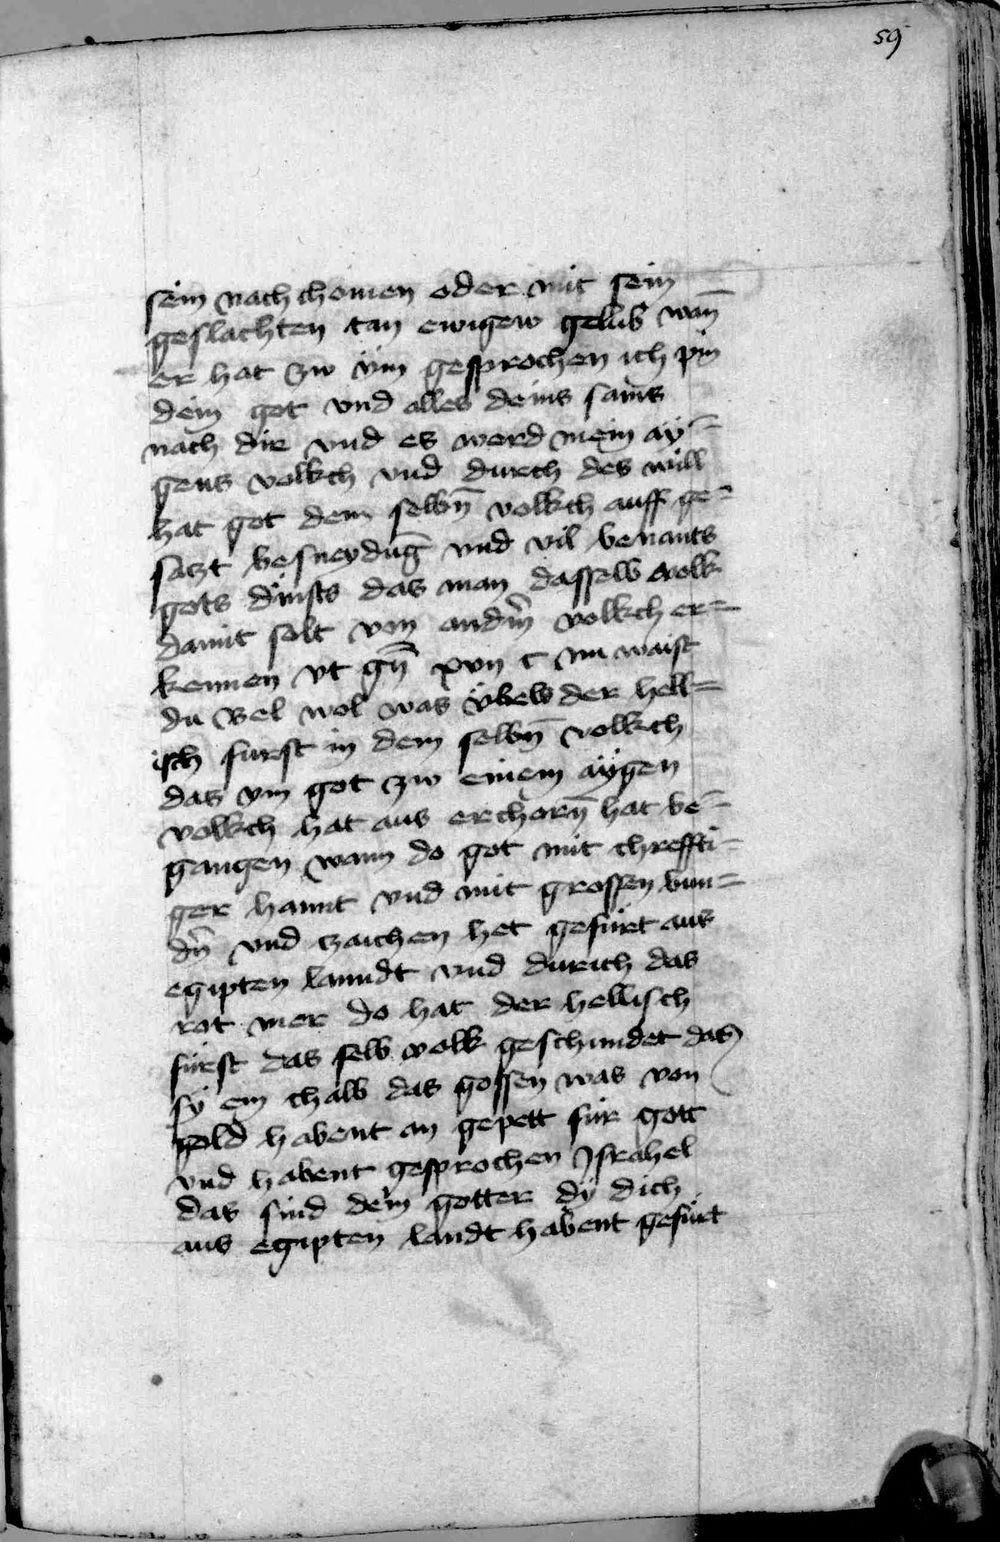 59
sein nachchomen oder mit sein
geslachten ean ewigew gelub wañ
er hat zw ÿm gesprochen ich pin
dein got vnd alles deins sams
nach dir vnd es werd mein aÿ-
gens volkch vnd durch des will
hat got dem selbñ volkch auff ge-
saczt besneydūg vnd vil benants
gots dinsts das man dasselb volk
damit solt von anderñ volkch er-
kennen vt gn̄ xvij c nu waist
du wel wol was vbels der hell-
isch furst in dem selbñ volkch
das ym got zw einem aÿgen
volkch hat aus erchorñ hat be-
gangen wann do got mit chreffti-
ger hannt vnd mit grossen wun-
dñ vnd zaichen het gefürt aus
egipten lanndt vnd durich das
rot mer do hat der hellisch
fürst das selb volk geschundet das
sÿ ein chalb das gossen was von
gold habent an gepett für gott
vnd habent gesprochen Israhel
das sind dein gotter dÿ dich
aus egipten landt habent gefürt